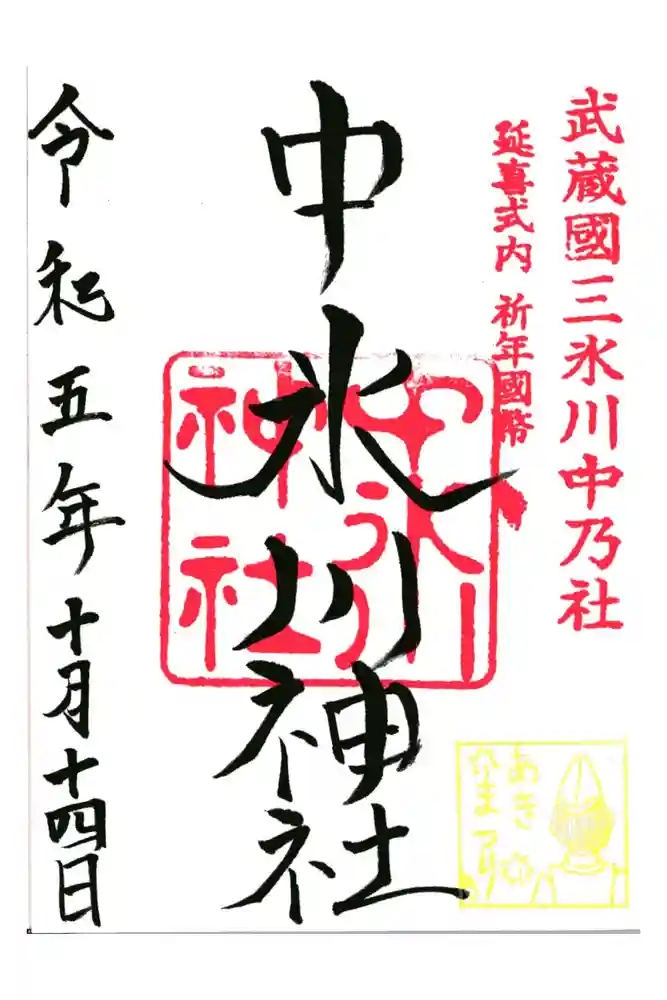 武蔵國三氷川中乃社
延喜式内 祈年國幣
中氷川神社
中氷川
神社
令和五年十月十四日
あき